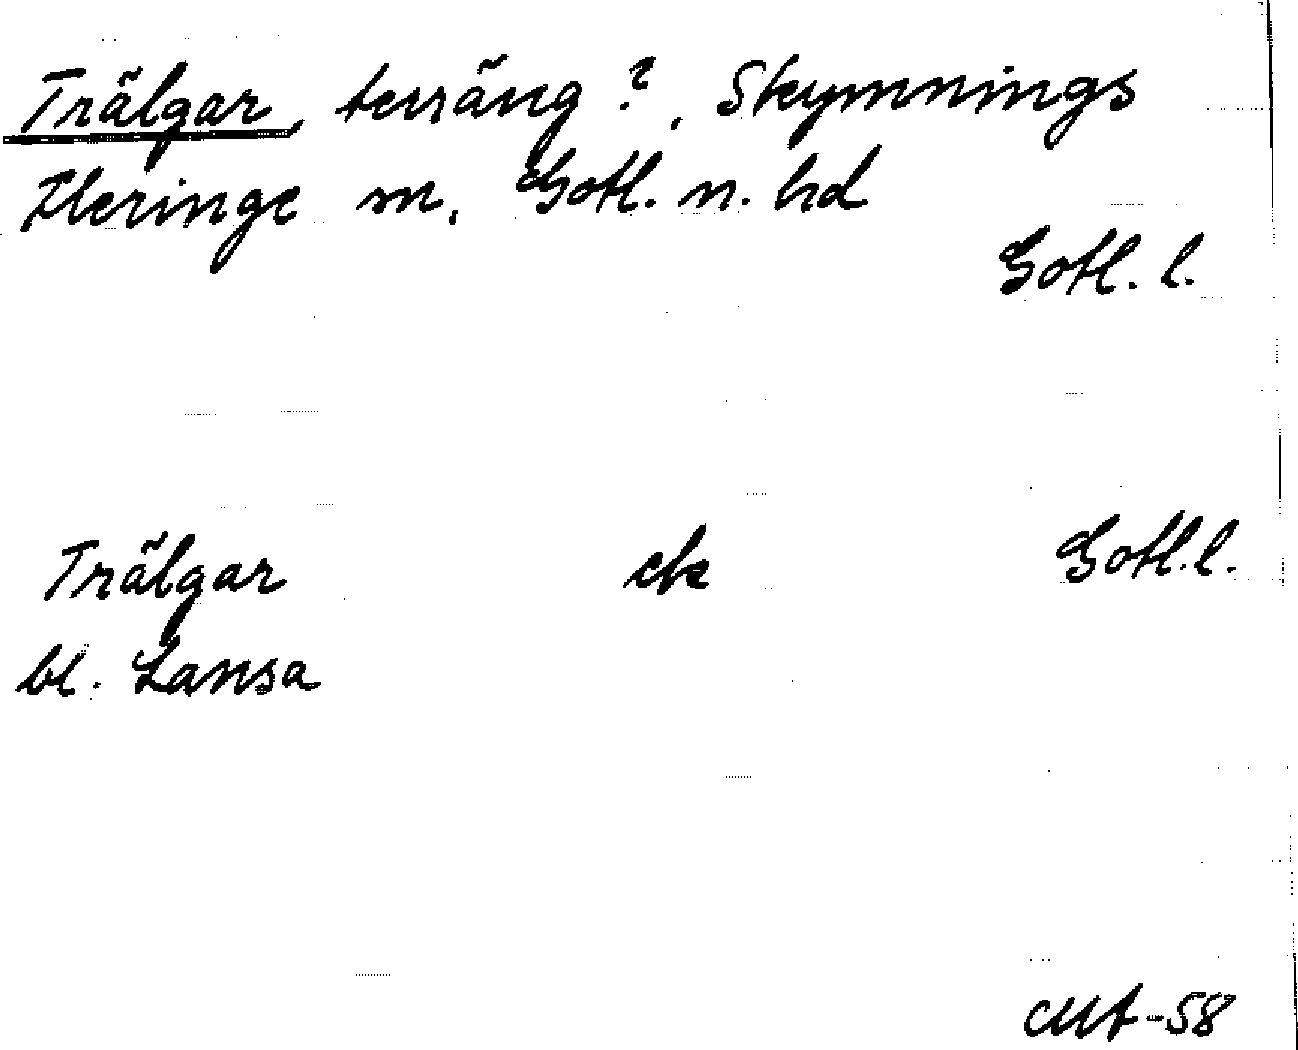 Trälgar, terräng?, Skymnings
Fleringe sn, Gotl. n. hd
Gotl. l.
Trälgar ek Gotl. l.
bl. Lansa
CMA-58